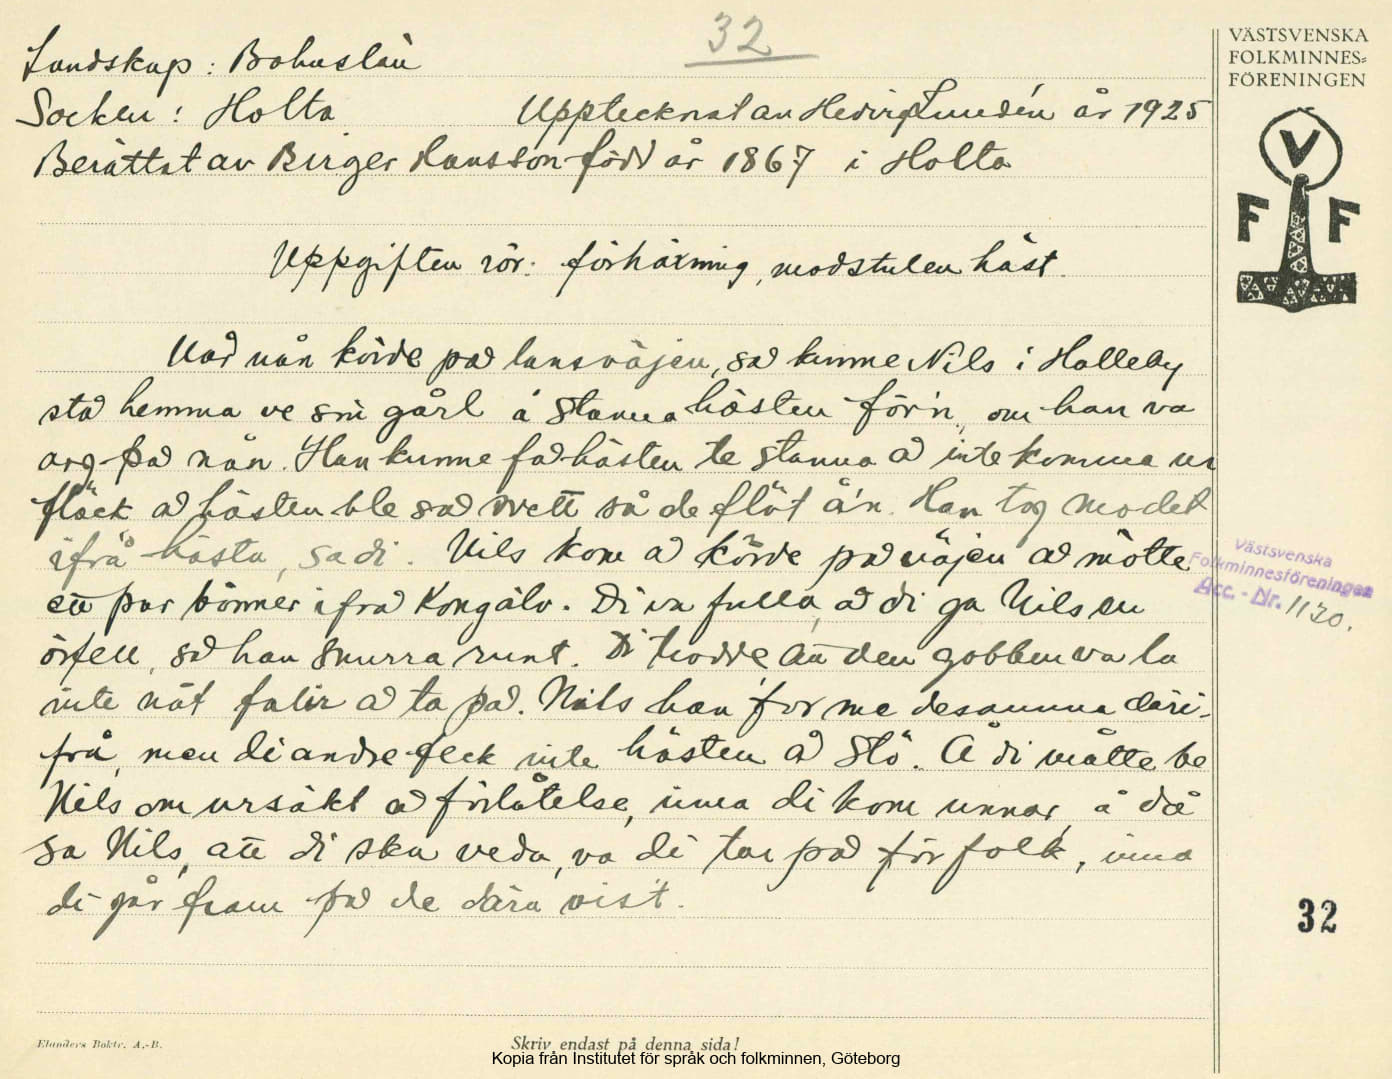 32
Landskap: Bohuslän
Socken: Holta Upptecknat av Hedvig Lundén år 1925
Berättat av Birger Hansson född år 1867 i Holta
Uppgiften rör: förhäxning, modstulen häst.
Nad nån körde pad lansväjen, sad kunne Nils i Holleby
stad hemma ve sin gård å stanna hästen för'n, om han va
arg pad nån. Han kunne fad hästen te stanna ad inte komma ur
fläck ad hästen ble sad svett så de flöt å'n. Han tog modet
ifrå hästa, sa di. Nils kom ad körde pad väjen ad mötte
ett par bönner ifrad Kongälv. Di va fulla, åd di ga Nils en
örfell, sad han snurra runt. Di trodde att den gobben va la
inte nåt falir ad ta pad. Nils han for me desamma däri-
frå, men di andre feck inte hästen åd stö. Å di måtte be
Nils om ursäkt ad förlåtelse, inna di kom unnar, å då
sa Nils, att di sku veda, va di tar pad för folk, inna
di går fram pad de dära vis't.
VÄSTSVENSKA
FOLKMINNES=
FÖRENINGEN
V
F F
Västsvenska
Folkminnesföreningen
Acc. - Nr. 1130.
32
Elanders Boktr. A.-B.
Skriv endast på denna sida!
Kopia från Institutet för språk och folkminnen, Göteborg